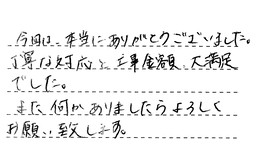 今回は、本当にありがとうございました。
丁寧な対応と工事金額、大満足
でした。
また何かありましたらよろしく
お願い致します。